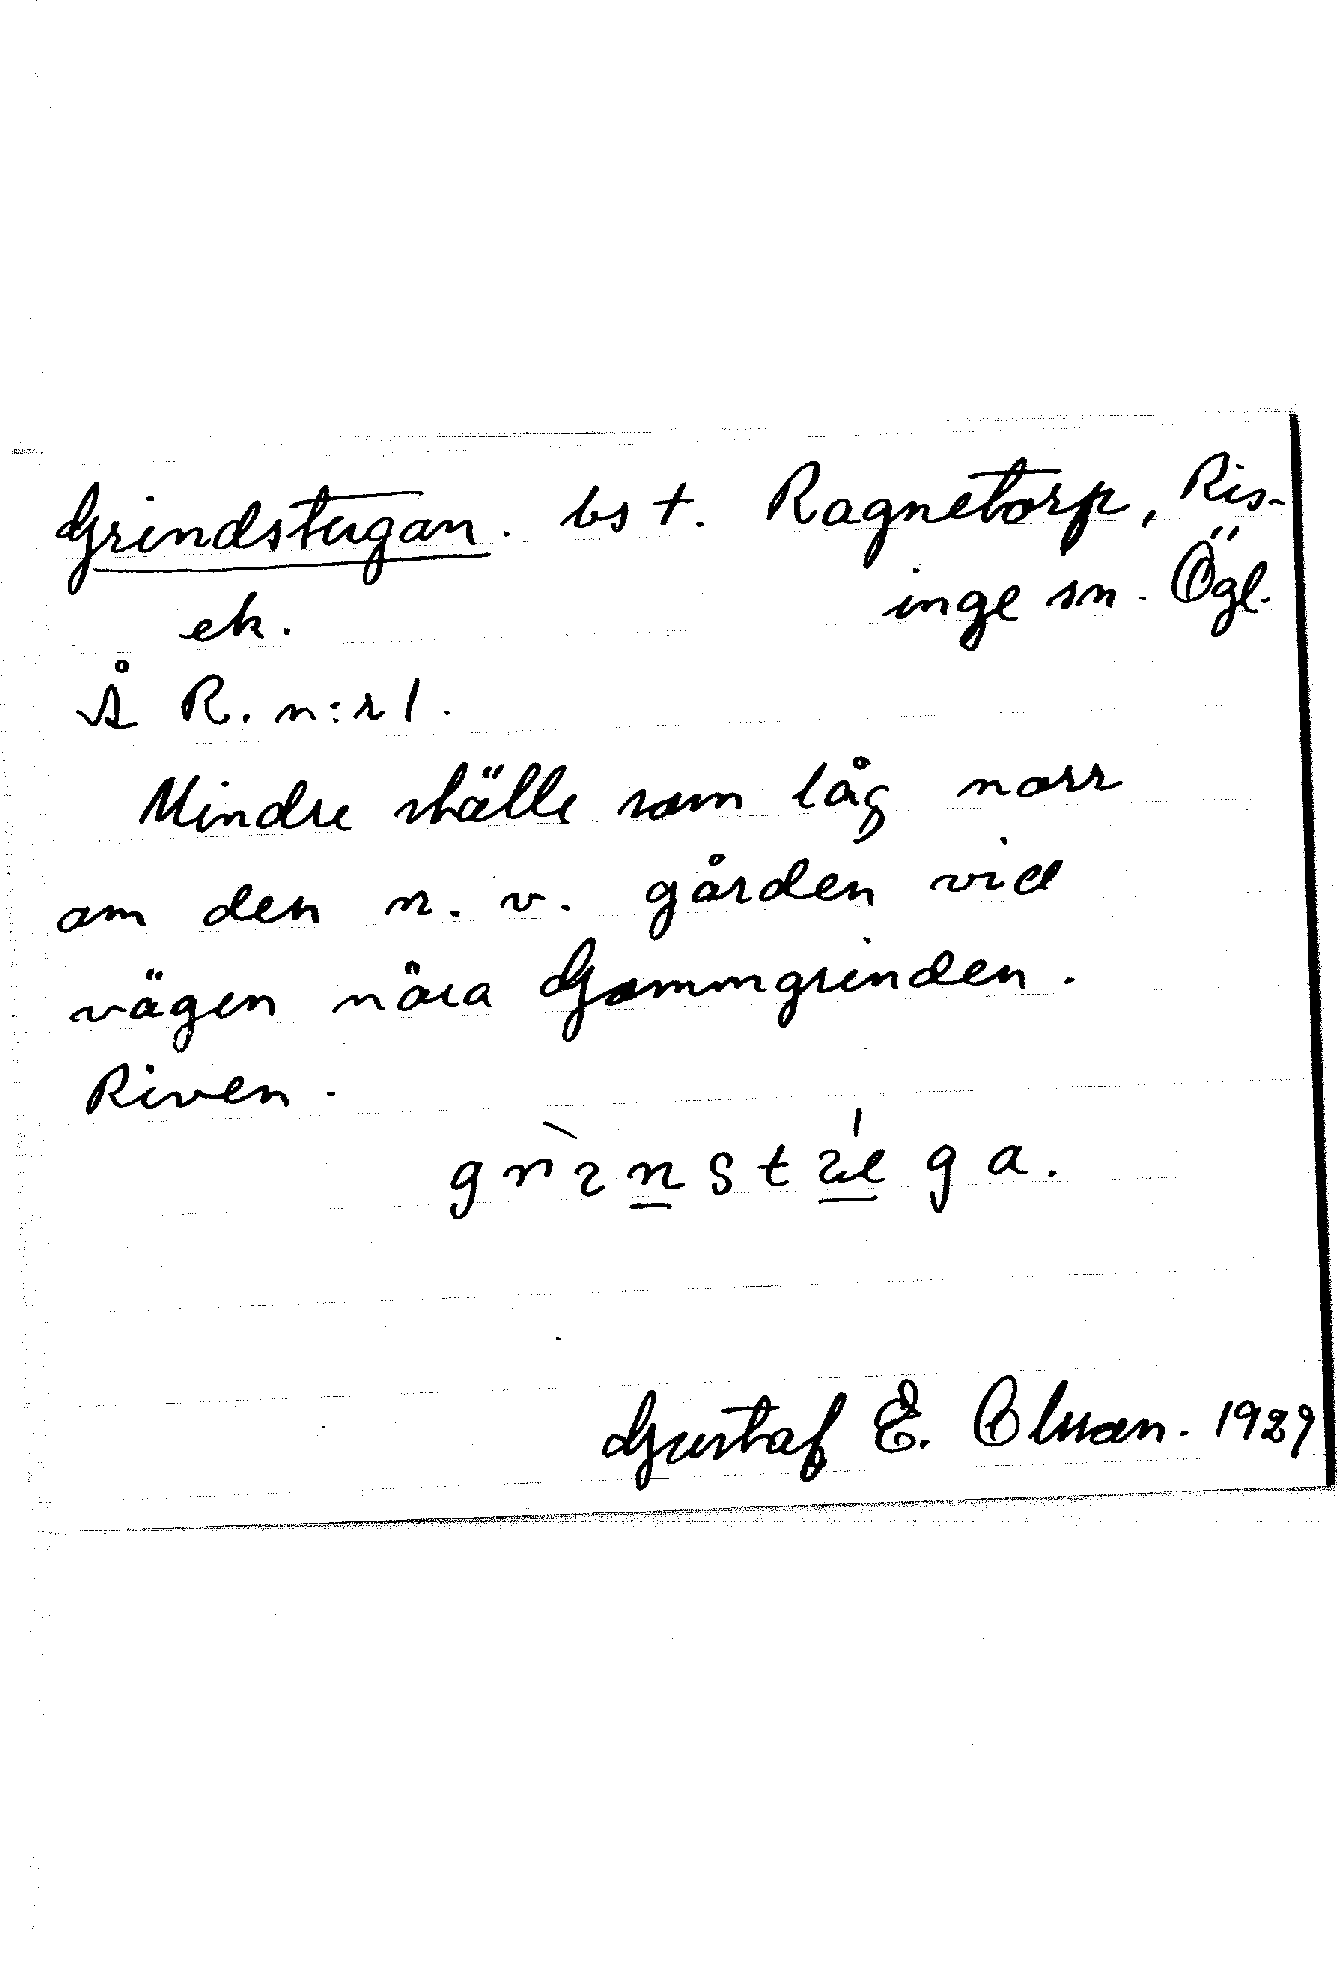 Grindstugan. bst. Ragnetorp, Ris-
ek. inge sn. Ögl.
Å R. n:r 1.
Mindre ställe som låg norr
om den n. v. gården vid
vägen nära Gommgrinden.
Riven.
Gustaf E. Olsson. 1929